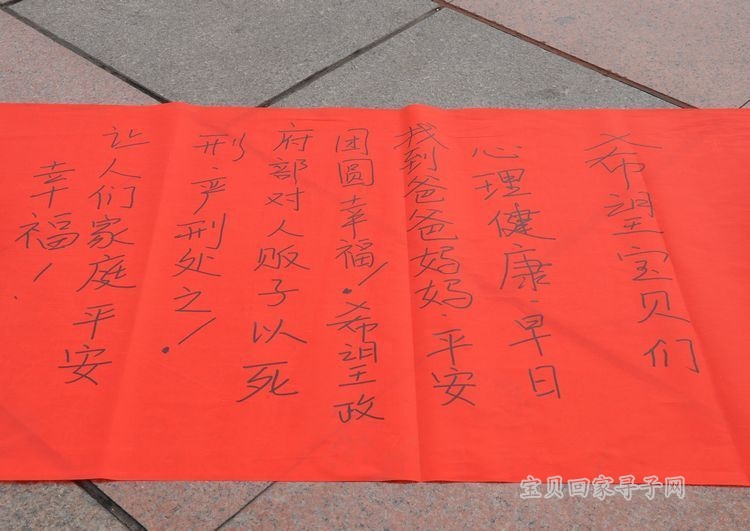 希望宝贝们
心理健康·早日
找到爸爸妈妈·平安
团圆幸福！·希望政
府部对人贩子以死
刑·严刑处之！
让人们家庭平安
幸福！
宝贝回家寻子网